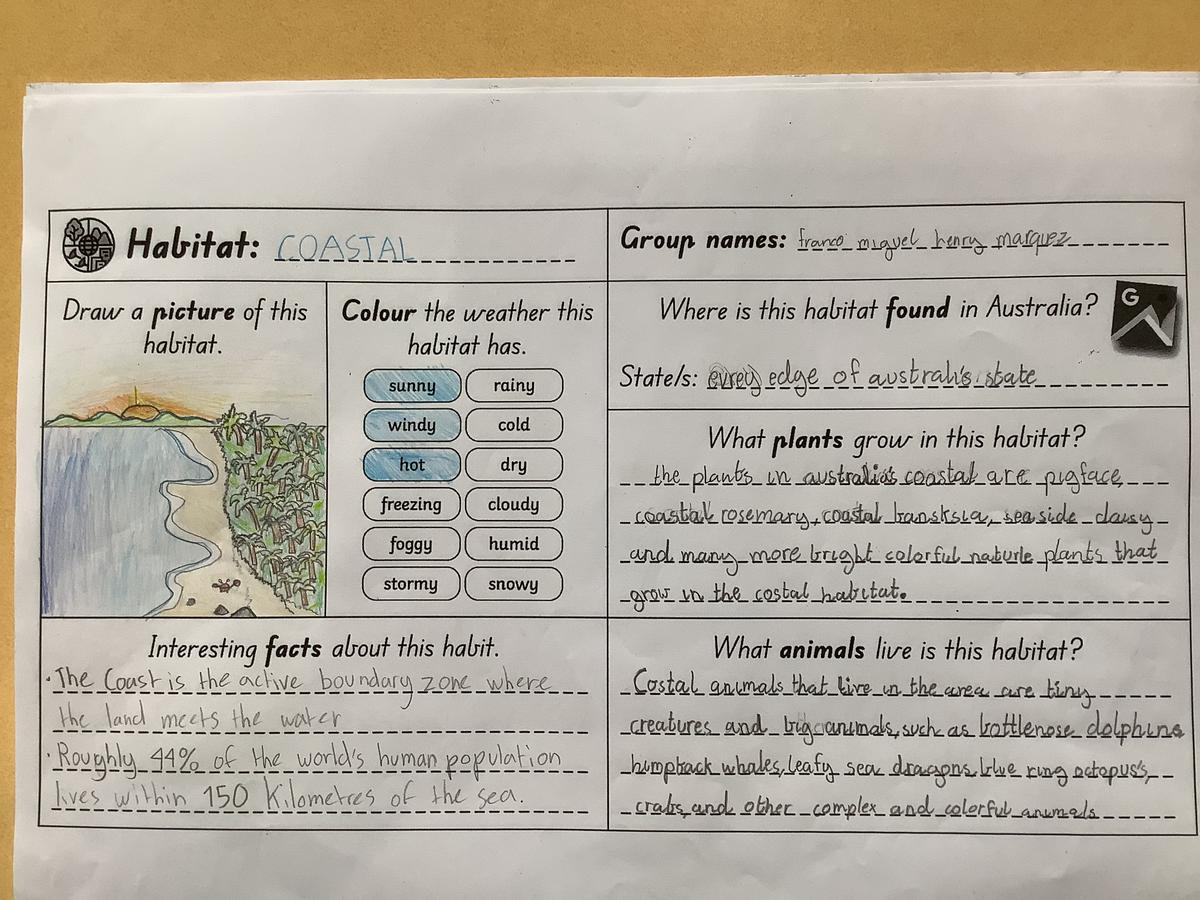 Habitat: COASTAL
Group names: franco miguel henry marquez
Draw a picture of this
habitat.
Colour the weather this
habitat has.
sunny rainy
windy cold
hot dry
freezing cloudy
foggy humid
stormy snowy
Where is this habitat found in Australia?
G
State/s: evrey edge of state
What plants grow in this habitat?
the plants in australia's coastal are pigface,
coastal rosemary, coastal banksia, seaside daisy
and many more bright colorful plants that
grow in the costal habitat.
Interesting facts about this habit.
· The Coast is the active boundary zone where
the land meets the water
· Roughly 44% of the world's human population
lives within 150 Kilometres of the sea.
What animals live is this habitat?
Costal animals that live in the area are tiny
creatures and big animals, such as bottlenose dolphins
humpback whales, leafy sea dragons, blue ring octopus's,
crabs, and other complex and colorful animals